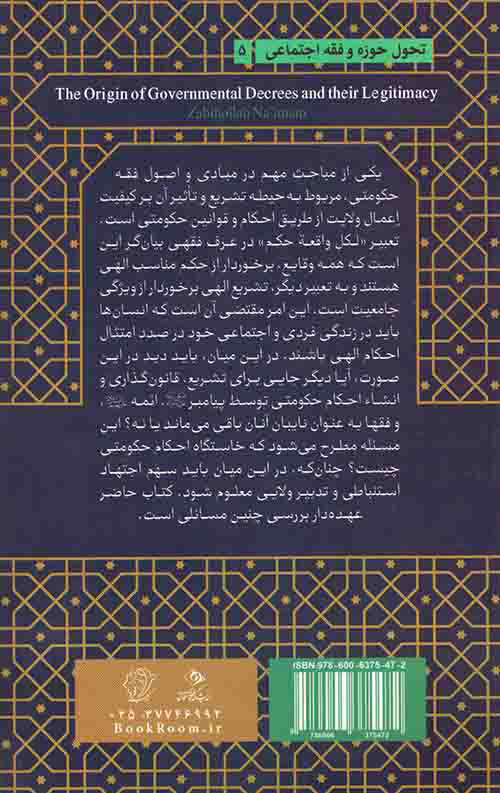 تحول حوزه و فقه اجتماعی | ۵
The Origin of Governmental Decrees and their Legitimacy
Zabihollah Na'imian
یکی از مباحث مهم در مبادی و اصول فقه
حکومتی، مربوط به حیطه تشریع و تأثیر آن بر کیفیت
اِعمال ولایت از طریق احکام و قوانین حکومتی است.
تعبیر «لکل واقعة حکم» در عرف فقهی بیان‌گر این
است که همه وقایع، برخوردار از حکم مناسب الهی
هستند و به تعبیر دیگر، تشریع الهی برخوردار از ویژگی
جامعیت است. این امر مقتضی آن است که انسان‌ها
باید در زندگی فردی و اجتماعی خود در صدد امتثال
احکام الهی باشند. در این میان، باید دید در این
صورت، آیا دیگر جایی برای تشریع، قانون‌گذاری و
انشاء احکام حکومتی توسط پیامبر، ائمه،
و فقها به عنوان نایبان آنان باقی می‌ماند یا نه؟ این
مسئله مطرح می‌شود که خاستگاه احکام حکومتی
چیست؟ چنان‌که، در این میان باید سهم اجتهاد
استنباطی و تدبیر ولایی معلوم شود، کتاب حاضر
عهده‌دار بررسی چنین مسائلی است.
۰۲۵ ۳۷۷۴۶۹۹۲
BookRoom.ir
ISBN 978-600-6375-47-2
9 786006 375472